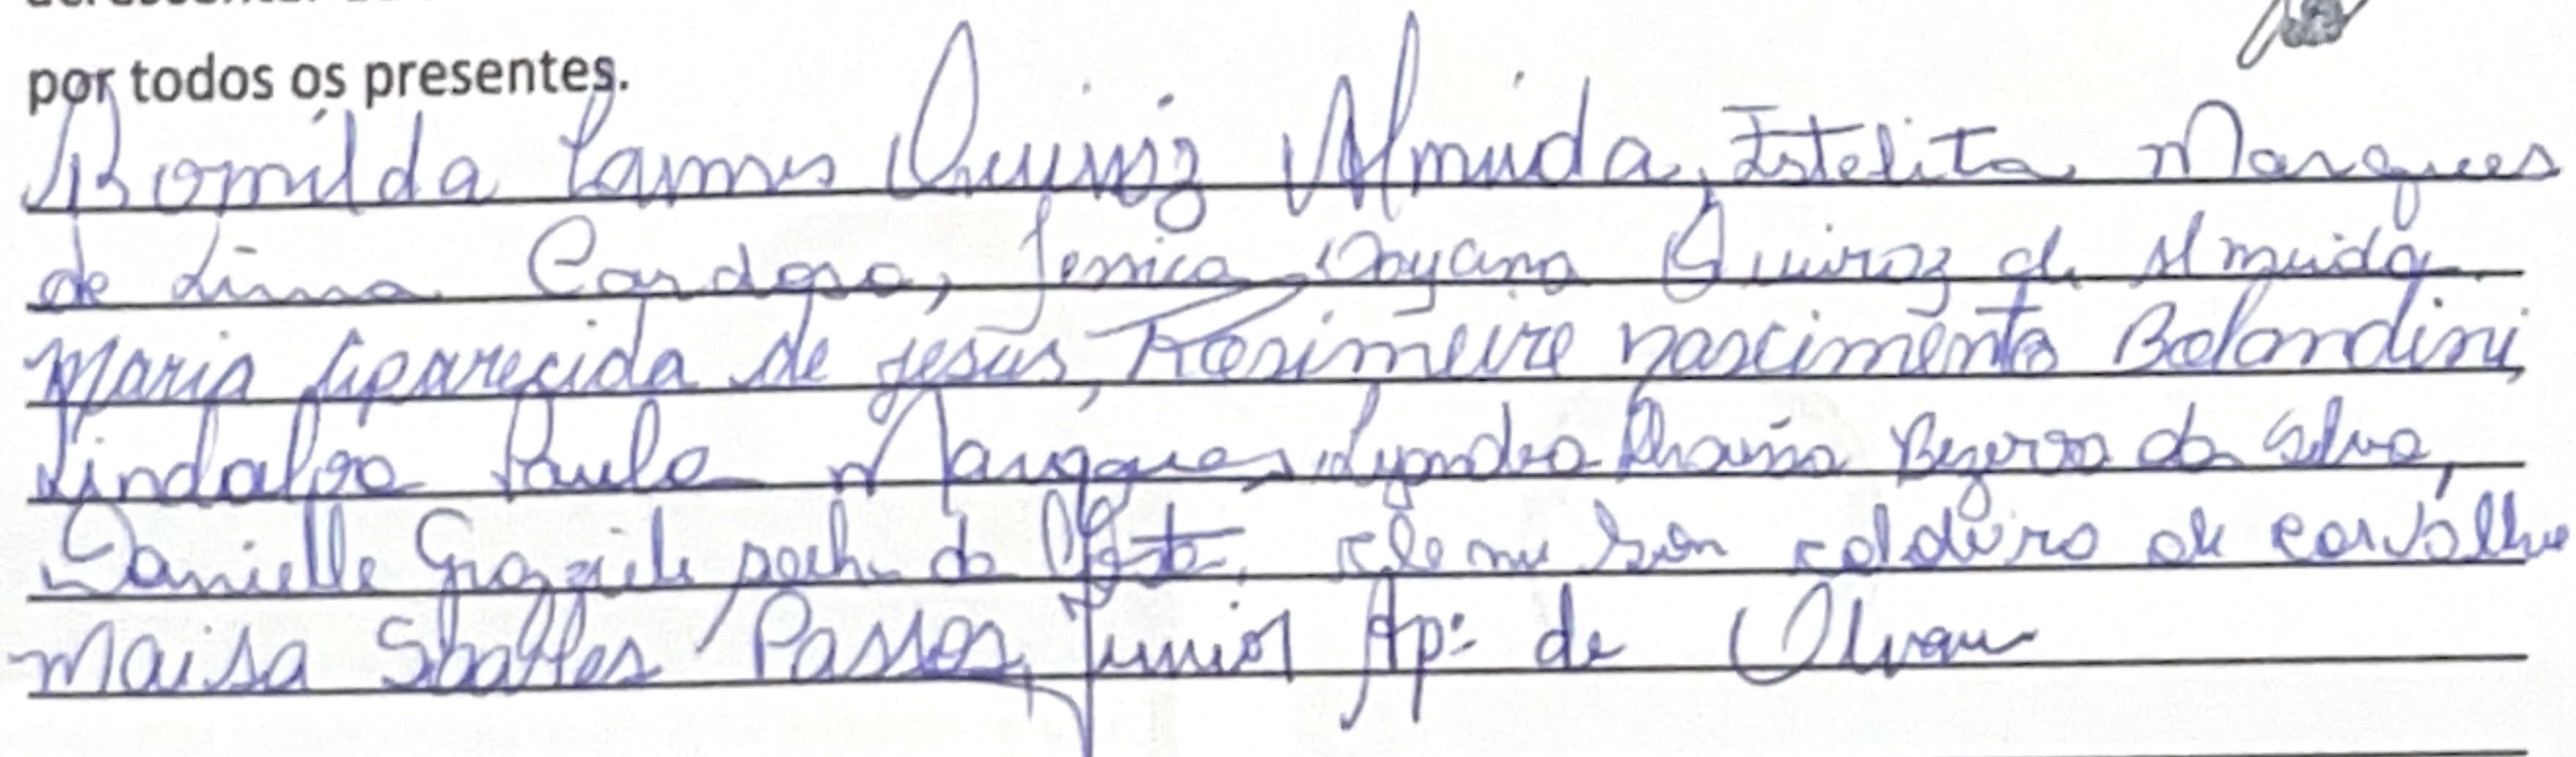 por todos os presentes.
Romilda Ramos Queiroz Almeida, Estelita Marques
de Lima Cardoso, Jessica Dayana Queiroz de Almeida
Maria Aparecida de Jesus, Rosimeire nascimento Bolandini,
Lindalva Paula Marques, Lyandra Bezerra da Silva,
Danielle Graziele da Costa, caldeira de carvalho
Maisa Passos, Junior Ap: de